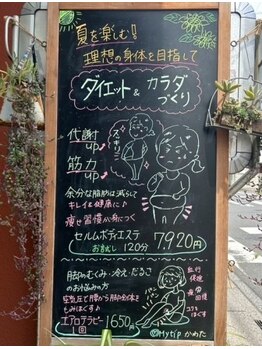 夏を楽しむ!
理想の身体を目指して
ダイエット & カラダづくり
代謝up♪
スッキリ
筋力up♪
余分な脂肪は減らして
キレイ&健康に♪
痩せ習慣が身につく
セルムボディエステ
お試し 120分 7,920円
脚のむくみ・冷え・だるさ
のお悩みの方
空気圧で腰から脚全体を
もみほぐす♪
エアロテラピー
1回 1,650円
血行促進
疲労回復
コリほぐす
Mytip かめた